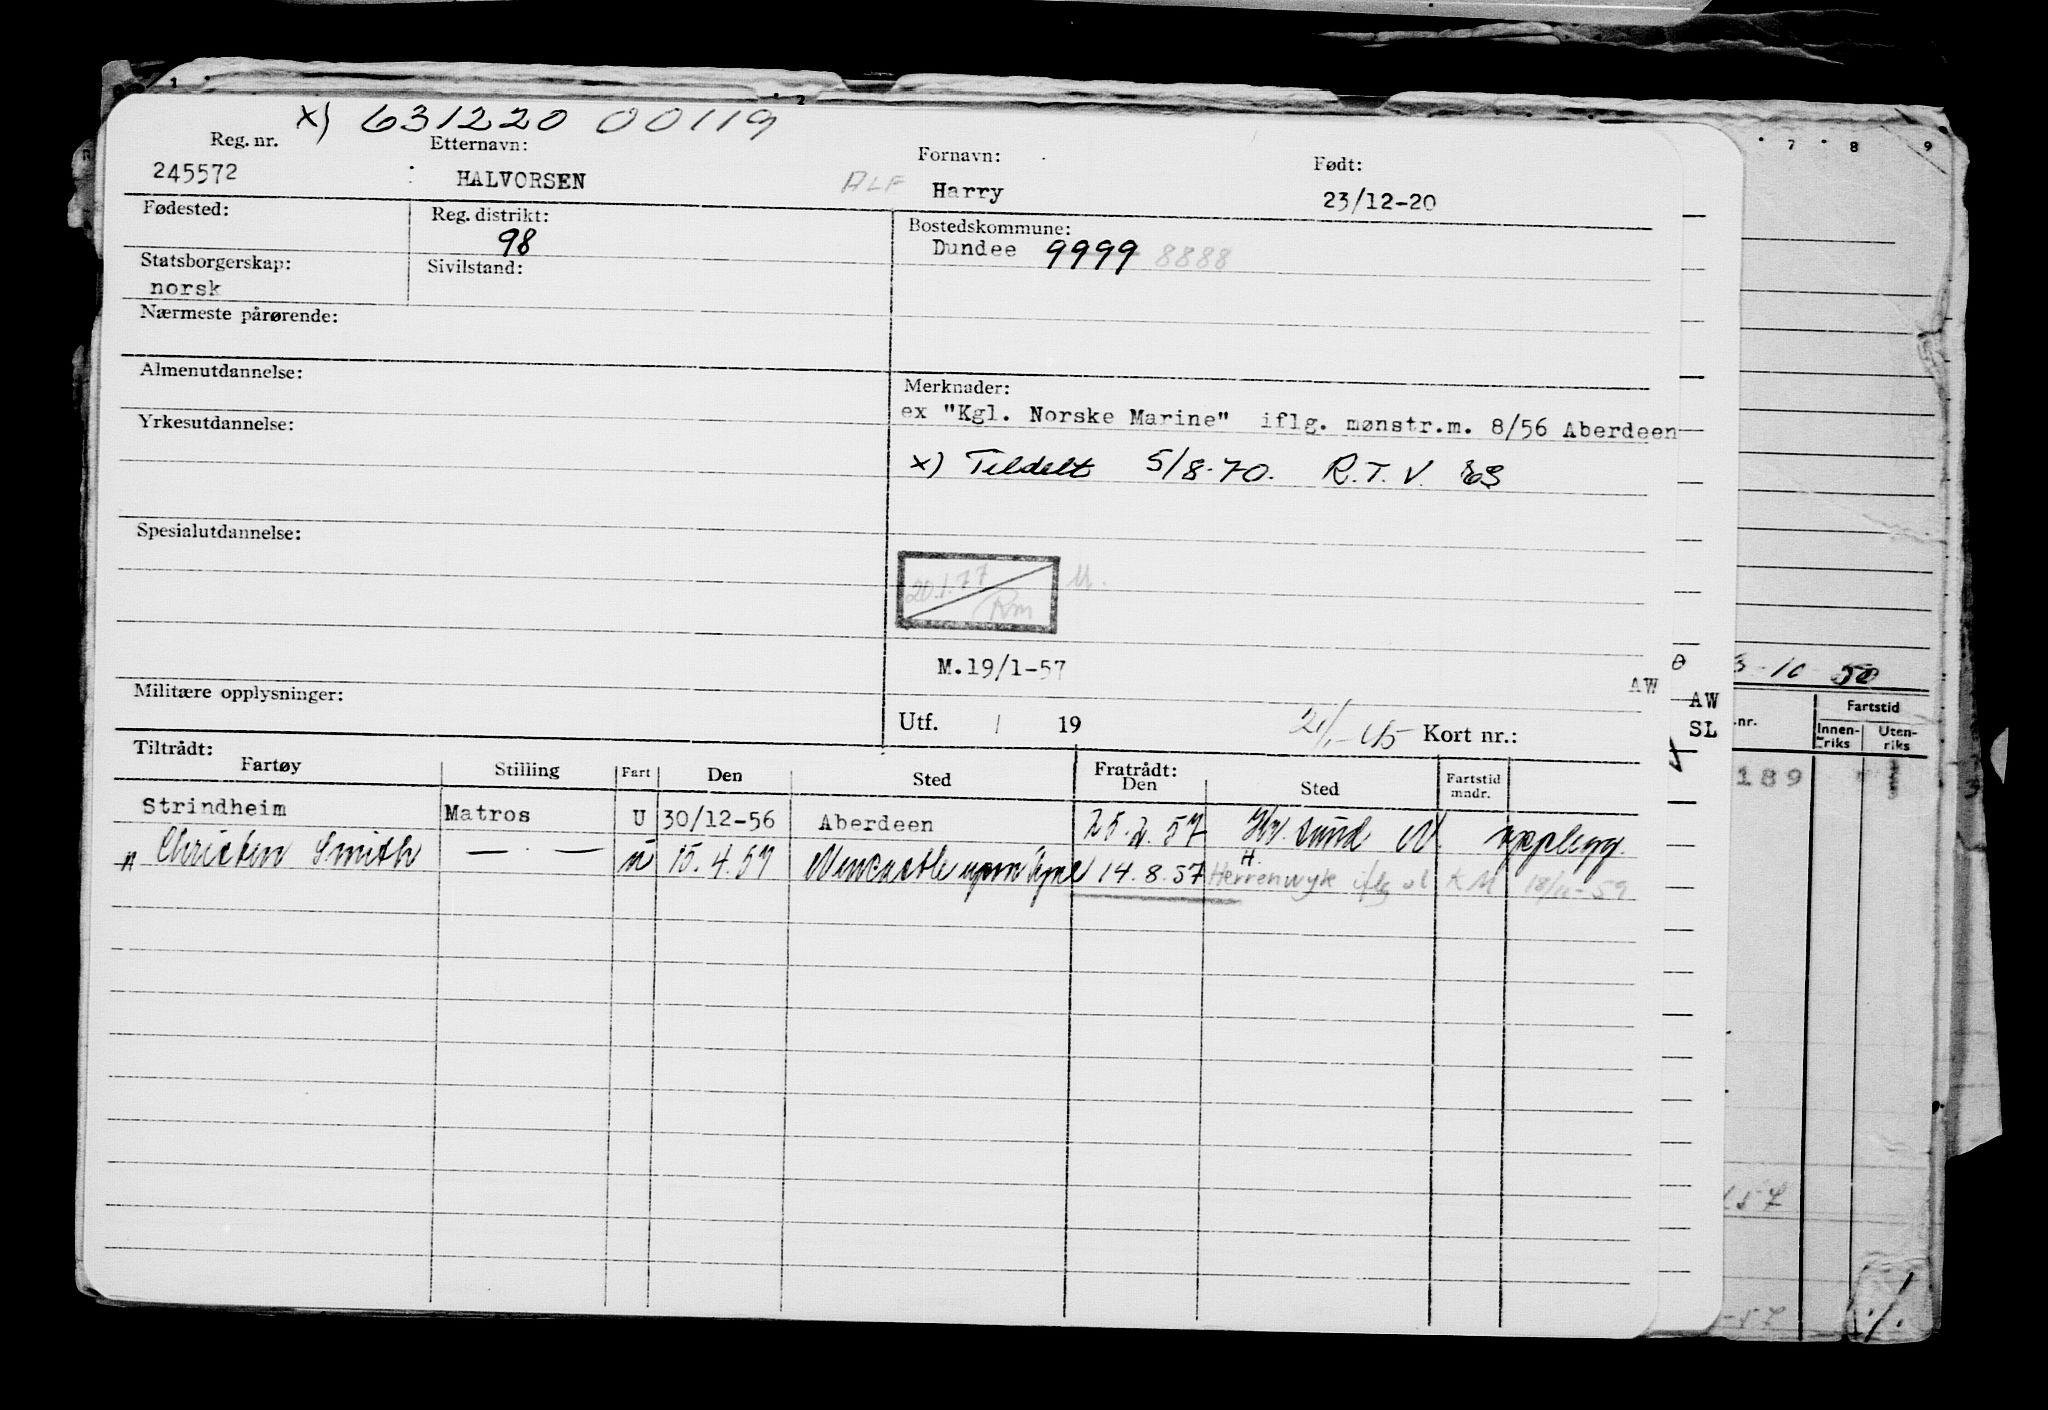 x) 631220 00119
Reg. nr. Etternavn: Fornavn: Født:
245572 HALVORSEN ALF Harry 23/12-20
Fødested: Reg. distrikt: 98 Bostedskommune: Dundee 9999 8888
Statsborgerskap: norsk Sivilstand:
Nærmeste pårørende:
Almenutdannelse: Merknader:
ex "Kgl. Norske Marine" iflg. mønstr.m. 8/56 Aberdeen
Yrkesutdannelse:
x) Tildelt 5/8-70. R.T.V.
Spesialutdannelse:
20.1.77 Rm
M.19/1-57
AW
Militære opplysninger:
Utf. / 19 Kort nr.:
Tiltrådt: Fratrådt:
Fartøy Stilling Fart Den Sted Den Sted Fartstid mndr.
Strindheim Matros U 30/12-56 Aberdeen 25.2.57 Kr. sund N opplegg.
Christen Smith — . — u 15.4.57 Newcastle upon Tyne 14.8.57 Herrenwyk iflg KM 18/11-59
1 2 7 8 9
10 50
AW
SL
.nr. Fartstid
Innen-riks Uten-riks
189